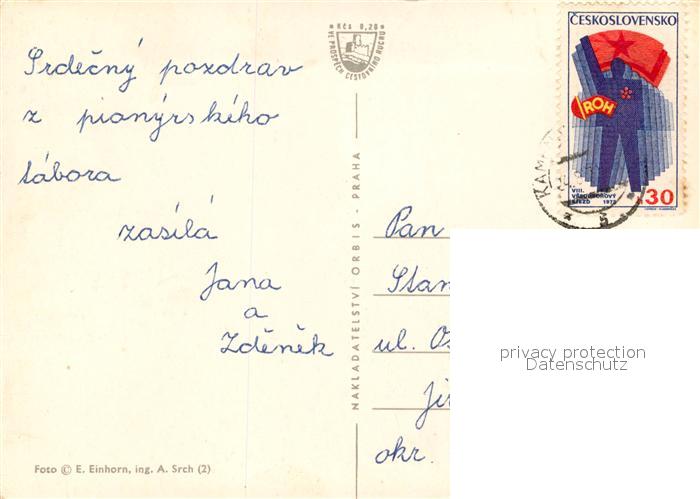 Srdečný pozdrav
z pionýrského
tábora
zasílá
Jana
a
Zděněk
Foto © E. Einhorn, ing. A. Srch (2)
Kčs 0,20
VE PROSPĚCH CESTOVNÍHO RUCHU
NAKLADATELSTVÍ ORBIS - PRAHA
ČESKOSLOVENSKO
ROH
VIII.
VŠEODBOROVÝ
SJEZD 1972
30
Pan
ul.
okr.
privacy protection
Datenschutz